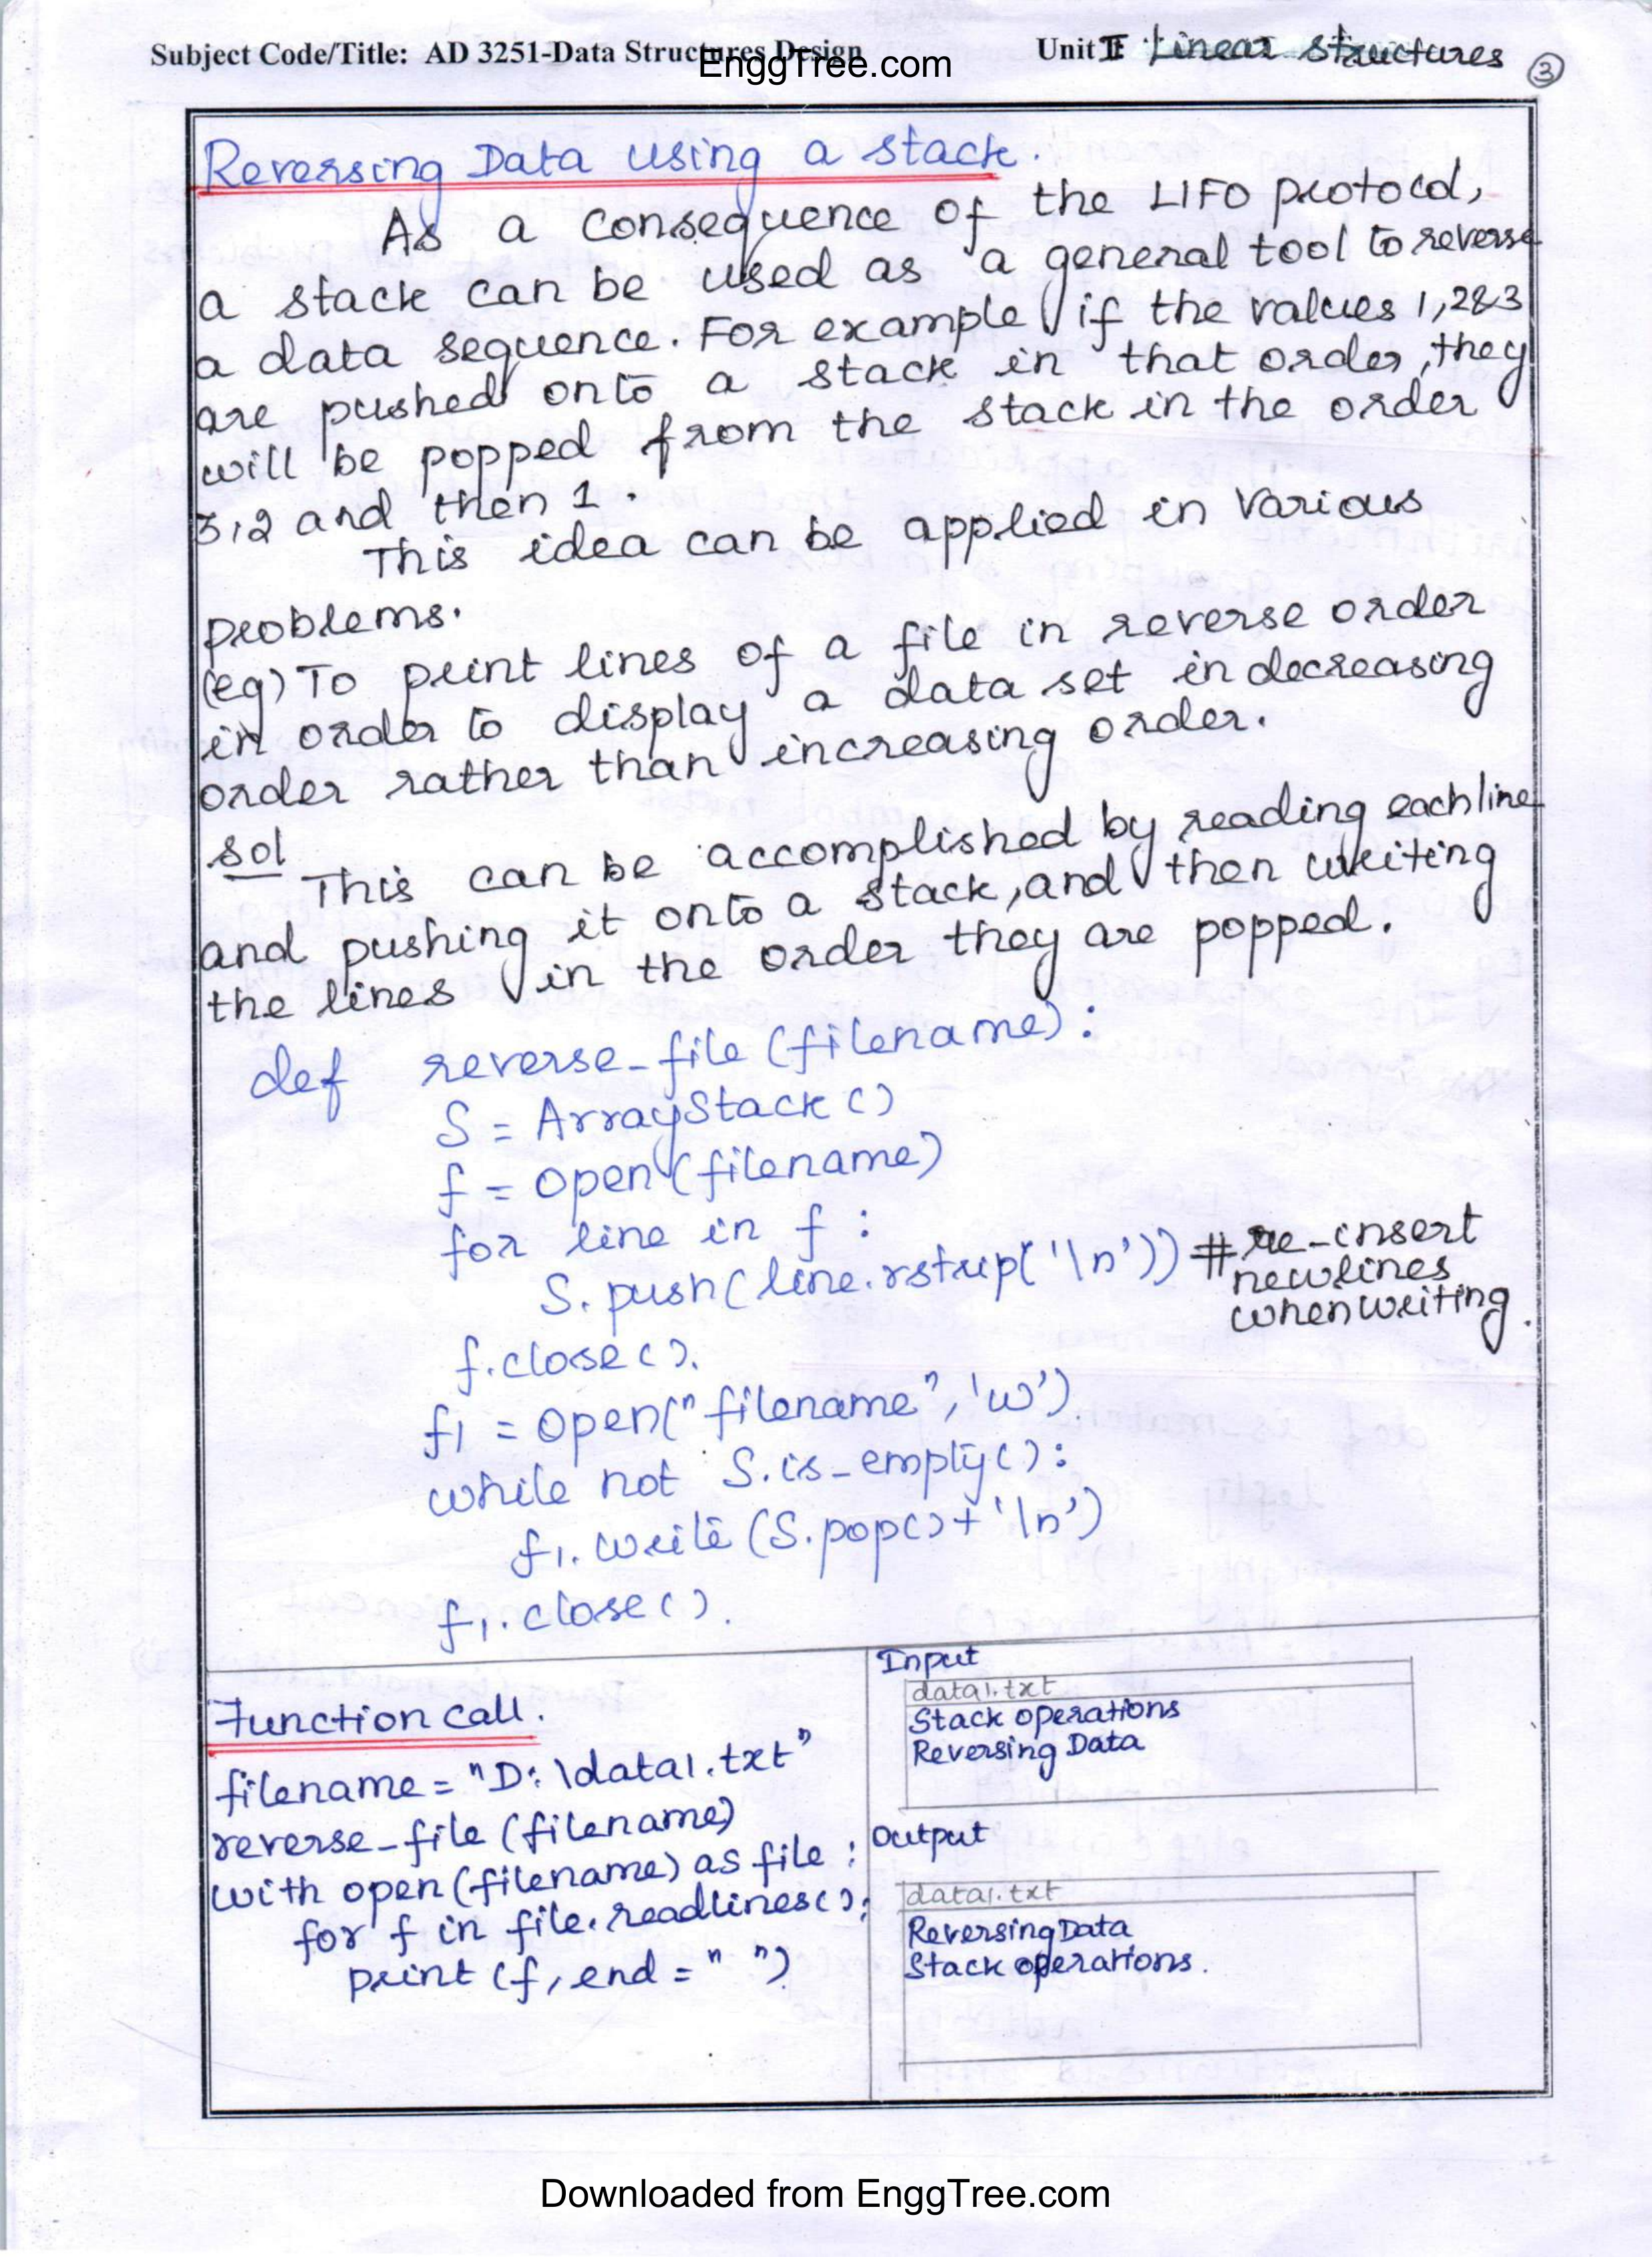 Subject Code/Title: AD 3251-Data Structures Design
EnggTree.com
Unit II Linear Structures
3
Reversing Data using a stack.
As a consequence of the LIFO protocol,
a stack can be used as a general tool to reverse
a data sequence. For example if the values 1,2&3
are pushed onto a stack in that order, they
will be popped from the stack in the order
3,2 and then 1.
This idea can be applied in various
problems.
(eg) To print lines of a file in reverse order
in order to display a data set in decreasing
order rather than increasing order.
Sol
This can be accomplished by reading each line
and pushing it onto a stack, and then writing
the lines in the order they are popped.
def reverse_file (filename):
S = ArrayStack ()
f = open (filename)
for line in f :
S. push( line. rstrip( '\n')) # re-insert
newlines
when writing.
f.close().
f1 = open("filename", 'w').
while not S. is_empty():
f1. write (S. pop() + '\n')
f1. close().
Function call.
filename = "D:\data1.txt"
reverse_file (filename)
with open (filename) as file :
for f in file. readlines():
print (f, end = " ")
Input
data1.txt
Stack operations
Reversing Data
Output
data1.txt
Reversing Data
Stack operations.
Downloaded from EnggTree.com